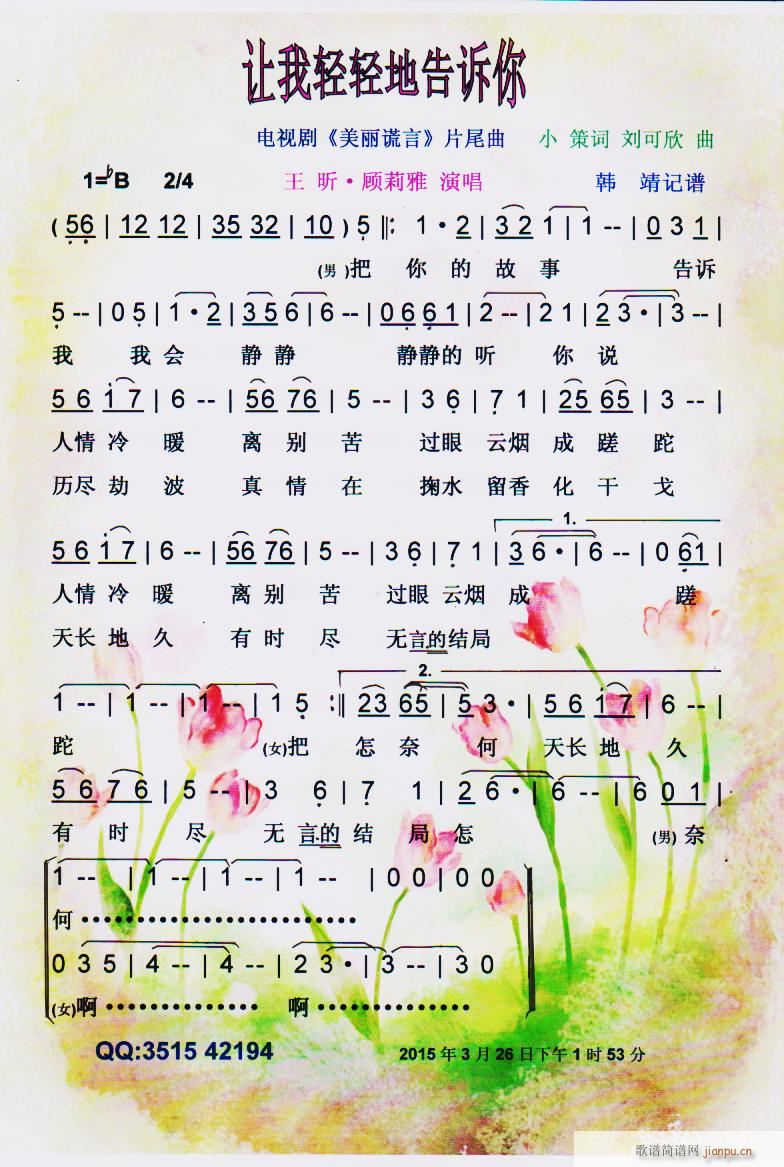 让我轻轻地告诉你
电视剧《美丽谎言》片尾曲 小 策词 刘可欣 曲
1=♭B 2/4 王 昕·顾莉雅 演唱 韩 靖记谱
( 56 | 12 12 | 35 32 | 10 ) 5 ‖: 1 · 2 | 32 1 | 1 -- | 0 3 1 |
(男)把 你 的 故 事 告诉
5 -- | 0 5 | 1 · 2 | 35 6 | 6 -- | 0 6 6 1 | 2 -- | 2 1 | 2 3 · | 3 -- |
我 我 会 静 静 静静的 听 你 说
5 6 1 7 | 6 -- | 56 76 | 5 -- | 3 6 | 7 1 | 25 65 | 3 -- |
人情 冷 暖 离 别 苦 过眼 云烟 成 蹉 跎
历尽 劫 波 真 情 在 掬水 留香 化 干 戈
1.
5 6 1 7 | 6 -- | 56 76 | 5 -- | 3 6 | 7 1 | 3 6 · | 6 -- | 0 61 |
人情 冷 暖 离 别 苦 过眼 云烟 成 蹉
天长 地 久 有 时 尽 无言的结局
2.
1 -- | 1 -- | 1 -- | 1 5 :‖ 23 65 | 5 3 · | 5 6 1 7 | 6 -- |
跎 (女)把 怎 奈 何 天长 地 久
5 6 7 6 | 5 -- | 3 6 | 7 1 | 2 6 · | 6 -- | 6 0 1 |
有 时 尽 无 言的 结 局 怎 (男)奈
1 -- | 1 -- | 1 -- | 1 -- | 0 0 | 0 0
何 ·····················
0 3 5 | 4 -- | 4 -- | 2 3 · | 3 -- | 3 0
(女)啊 ············· 啊 ·············
QQ:3515 42194 2015 年 3 月 26 日下午 1 时 53 分
歌谱简谱网 jianpu.cn